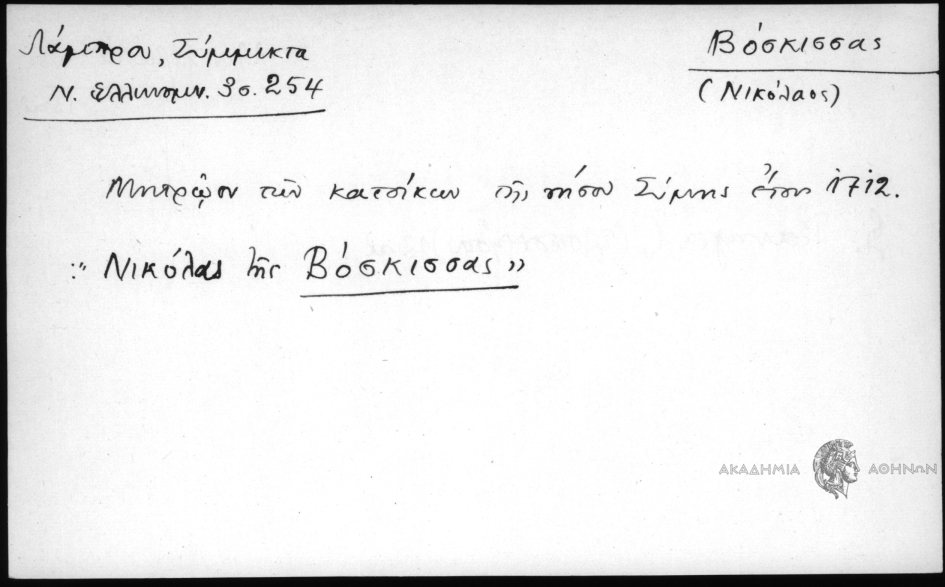 Λάμπρου, Σύμμικτα
Ν. Ελληνομν. 3 σ. 254
Βόσκισσας
(Νικόλαος)
Μητρῷον τῶν κατοίκων τῆς νήσου Σύμης ἔτους 1712.
:" Νικόλας τῆς Βόσκισσας »
ΑΚΑΔΗΜΙΑ ΑΘΗΝΩΝ